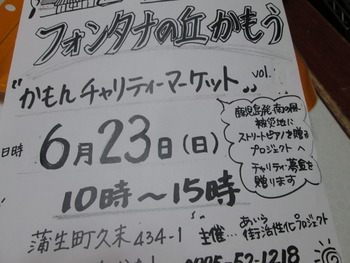 フォンタナの丘かもう
"かもん チャリティーマーケット" vol.
日時 6月23日(日)
10時～15時
鹿児島発・南の風
被災地に
ストリートピアノを贈る
プロジェクトへ
チャリティー募金を
贈ります
蒲生町久末434-1
主催… あいら街活性化プロジェクト
52-1218